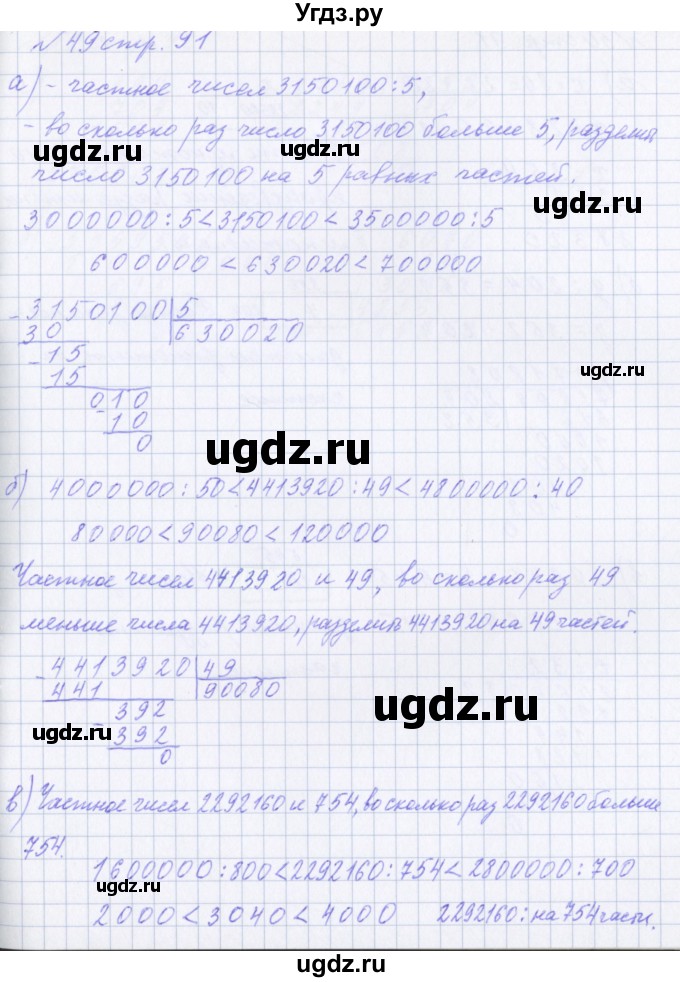 Угдз.ру
№ 49 стр. 91
а) - частное чисел 3150100:5,
- во сколько раз число 3150100 больше 5, разделить
ugdz.ru ugdz.ru
число 3150100 на 5 равных частей.
ugdz.ru
3000000:5<3150100<3500000:5
600000<630020<700000
-3150100 5
30 630020
ugdz.ru
-15
15
ugdz.ru
010
-10
0
ugdz.ru
б) 4000000:50<4413920:49<4800000:40
80000<90080<120000
Частное чисел 4413920 и 49, во сколько раз 49
меньше числа 4413920, разделить 4413920 на 49 частей.
-4413920 49
441 90080
ugdz.ru
392
-392
ugdz.ru
0
в) Частное чисел 2292160 и 754, во сколько раз 2292160 больше
754.
1600000:800<2292160:754<2800000:700
ugdz.ru ugdz.ru
2000<3040<4000 2292160: на 754 части.
ugdz.ru